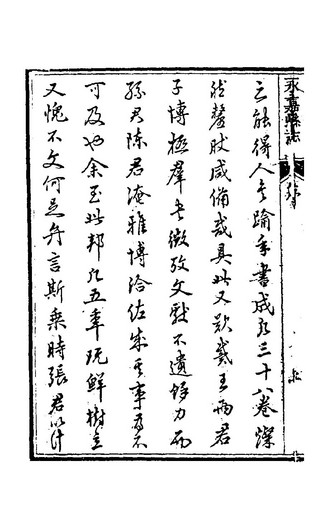 永嘉縣志
序
之能得人之踰年書成凡三十八卷深
然釐然咸備哉具此又戴王兩君
子博極羣書徵攷文獻不遺餘力而
孫君陳君淹雅博洽佐成其事為不
可及也余至此邦凡五年既鮮樹立
又愧不文何足弁言斯乘時張君以計